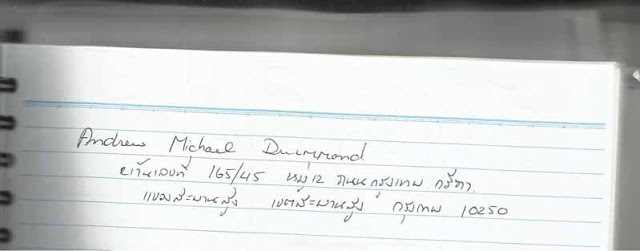 Andrew Michael Drummond
บ้านเลขที่ 165/45 หมู่ 12 ถนนกรุงเทพ กรีฑา
แขวงสะพานสูง เขตสะพานสูง กรุงเทพ 10250